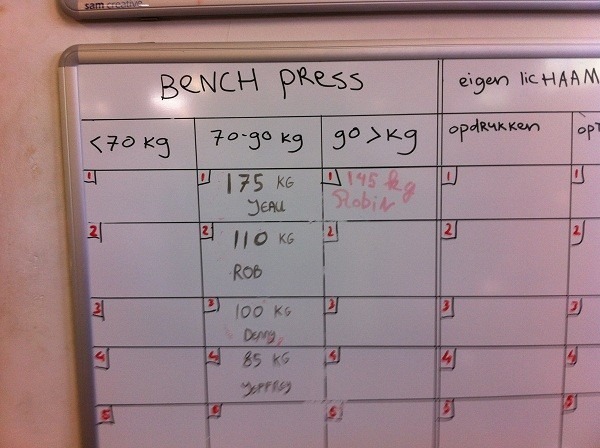 sam creative
BENCH PRESS
eigen licHAAM
<70 kg
70-90 kg
90>kg
opdrukken
opt
1
1 175 KG
JEAU
1 145 kg
Robin
1
1
2
2 110 KG
ROB
2
2
2
3
3 100 KG
Denny
3
3
3
4
4 85 KG
4
4
4
5
5
5
5
5